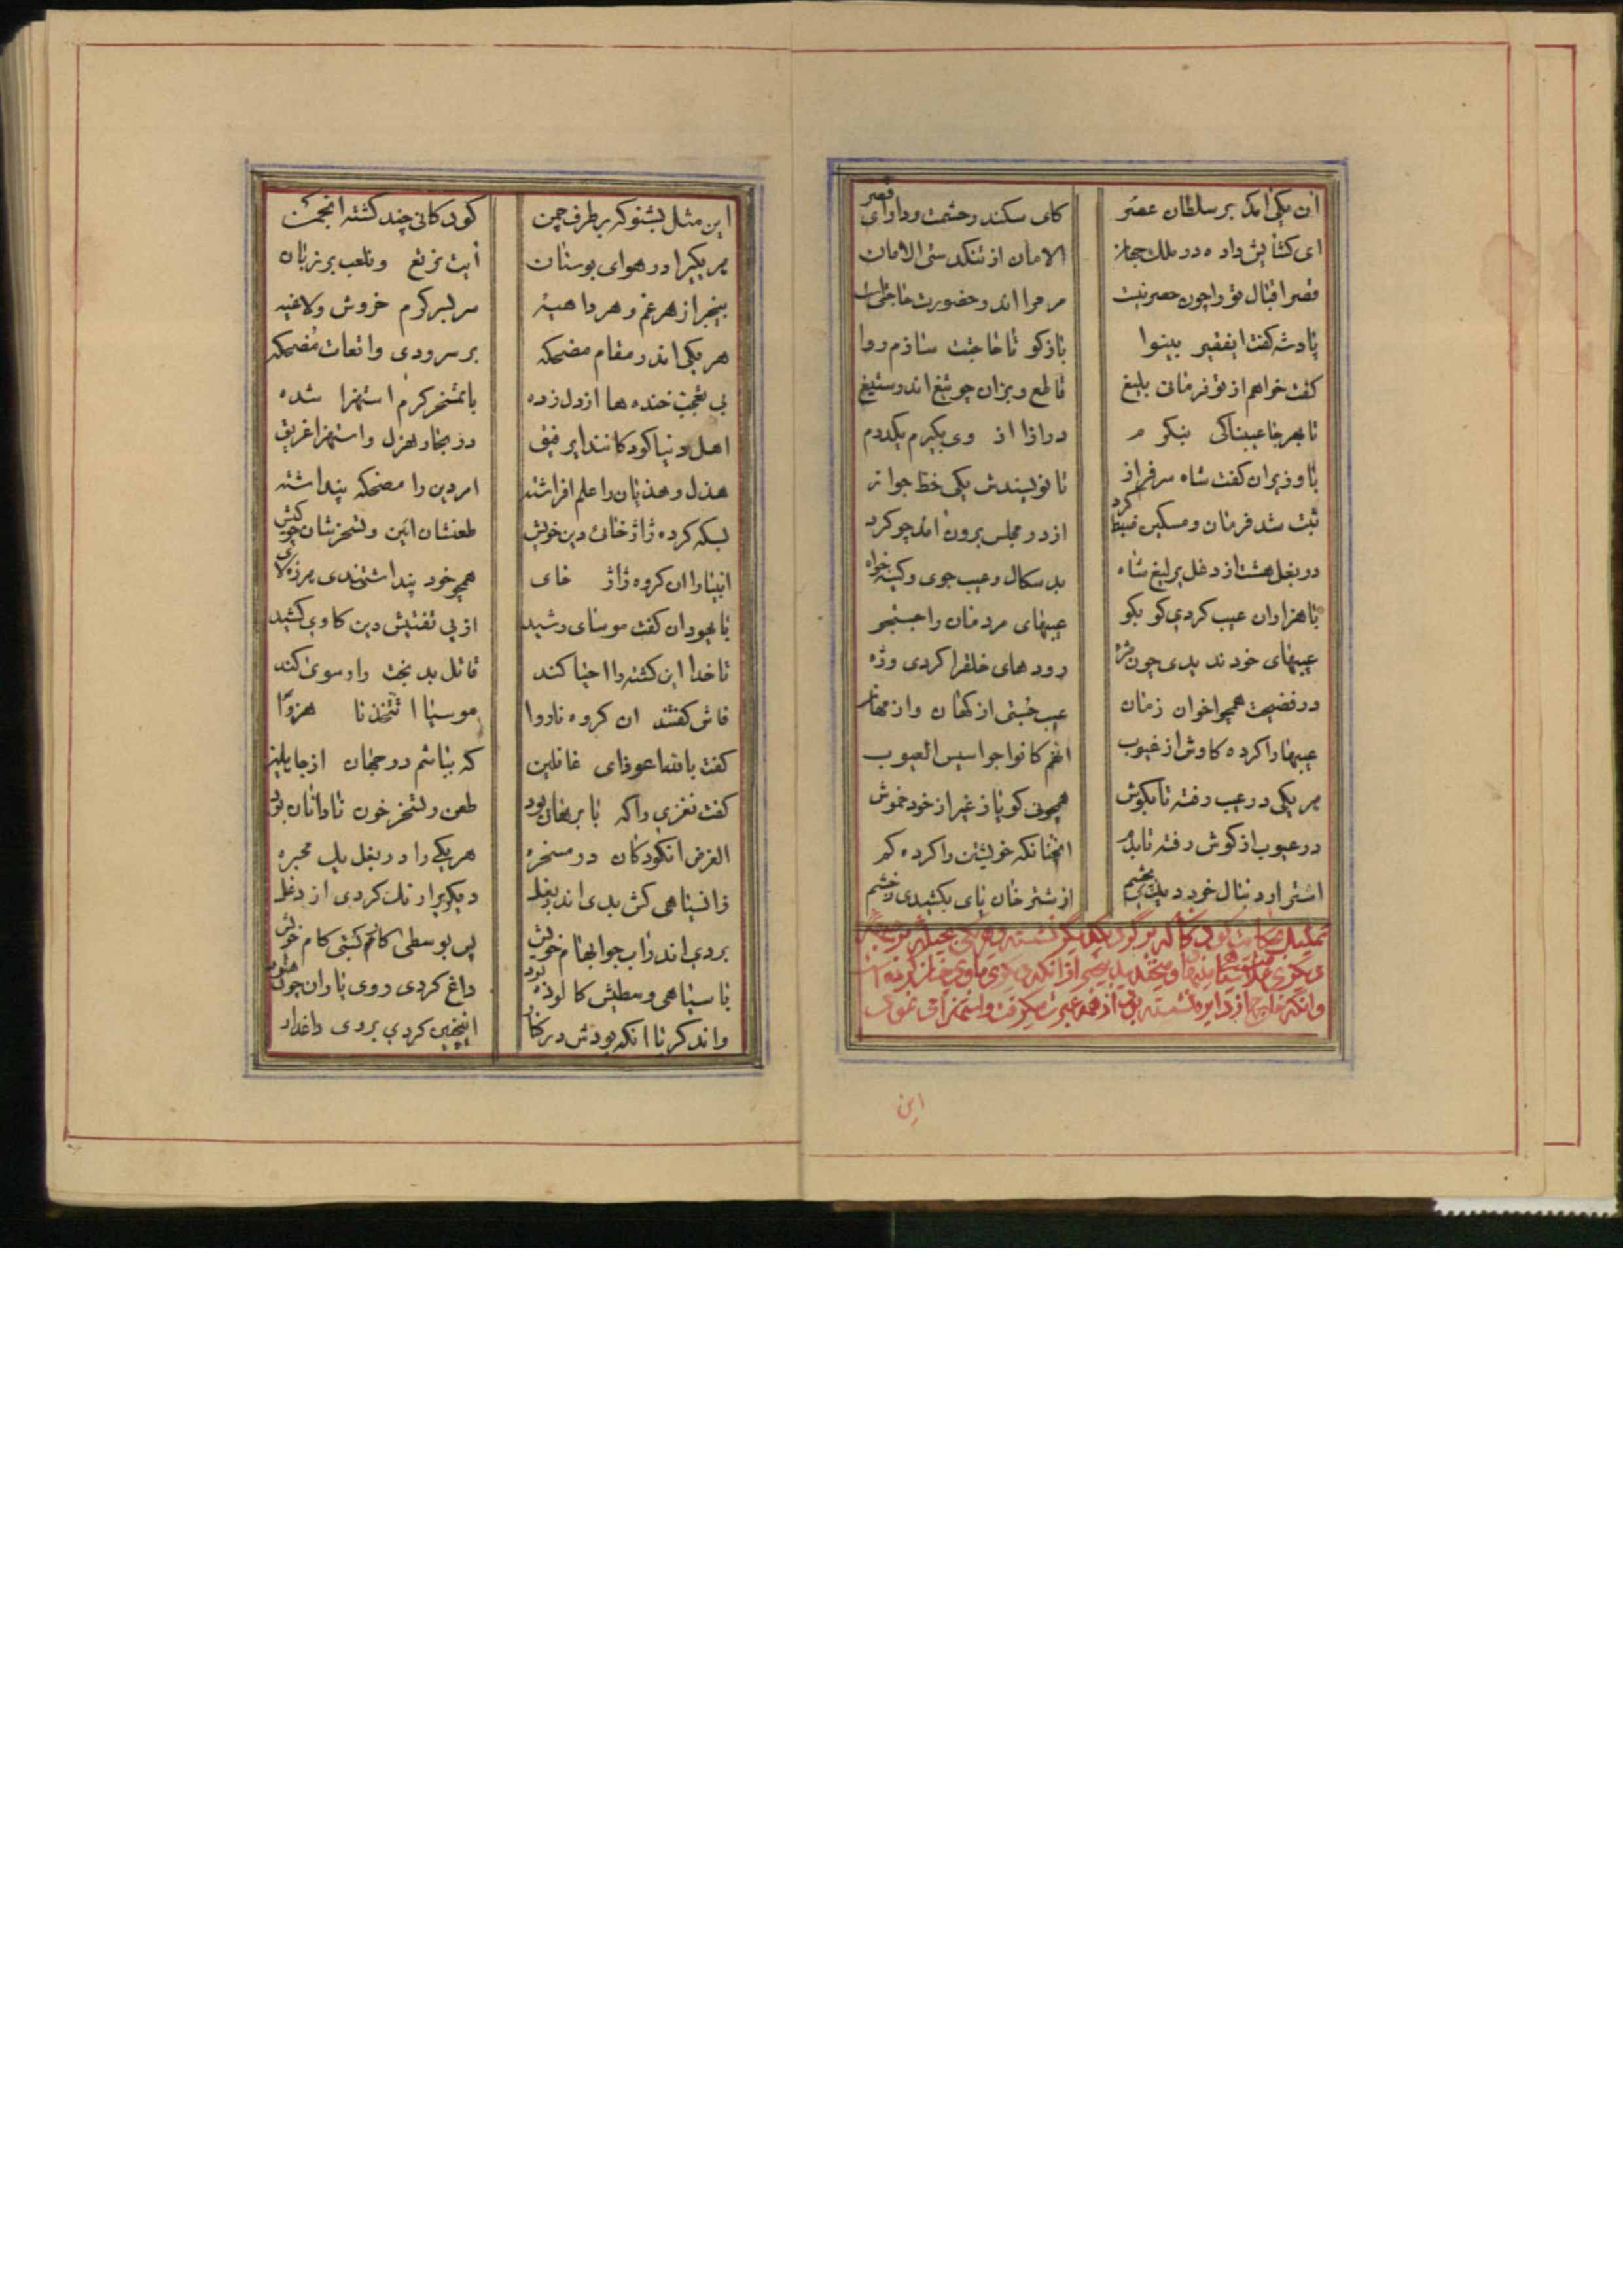 ان یکی امد بر سلطان عصر کای سکندر حشمت و دارای قصر
ای کشایش داده در ملک جهان الامان از تنکدستی الامان
قصر اقبال تو را چون حصر نیست مر مرا اندر حضورت حاجتی است
پادشه کفت ایفقیر بینوا باز کو تا حاجتت سازم روا
کفت خواهم از تو فرمانی بلیغ قاطع و بران چو تیغ اندر ستیغ
تا بهر جا عیبناکی بنکرم در ازا از وی بکیرم یکدرم
با وزیران کفت شاه سرفراز تا نویسندش یکی خط جواز
ثبت شد فرمان و مسکین ضبط کرد از در مجلس برون امد چو کرد
در بغل هشت از دغل یرلیغ شاه بد سکال و عیب جوی و کینه خواه
با هزاران عیب کردی کو بکو عیبهای مردمان را جستجو
عیبهای خود ندیدی چون مژه رودهای خلقرا کردی وژه
در فضیحت همچو اخوان زمان عیب جستی از کهان و از مهان
عیبها را کرده کاوش از غیوب انهم کانوا جواسیس العیوب
هر یکی در عیب رفته تا بکوش همچونی کویا ز غیر از خود خموش
در عیوب از کوش رفته تا بدم انچنانکه خویشتن را کرده کم
اشتر اورد نبال خود دیدن بخشم از شتر خان پای بکشیدی ز خشم
این
این مثل بشنو که بر طرف چمن کودکانی چند کشته انجمن
هر یکیرا در هوای بوستان ایت نرتع و نلعب بر زبان
بیخبر از هر غم و هر داهیه سر بسر کرم خروش و لاغیه
هر یکی اندر مقام مضحکه بر سرودی واقعات مضحکه
بی تعجب خنده ها از دل زده با تمسخر کرم استهزا شده
اهل دنیا کودکانند ایرفیق در بحار هزل و استهزا غریق
هذل و هذیان را علم افراشته امر دین را مضحکه پنداشته
بسکه کرده ژاژخائی دین خویش طعنشان ائین و تسخرشان چو کیش
انبیا را ان کروه ژاژ خای همچو خود پنداشتندی هرزه لای
با یهودان کفت موسای رشید از پی تفتیش دین کاوی کشید
تا خدا این کشته را احیا کند قاتل بد بخت را رسوی کند
فاش کفتند ان کروه ناروا موسیا اتتخذنا هزوا
کفت بالله اعوذ ای غافلین که بباشم در جهان از جاهلین
کفت نغزی را که با برهان بود طعن و تسخر خون نادانان بود
الغرض انکودکان در مسخره هر یکی را در بغل یک محبره
زان سیاهی کش بدی اندر بغل دیکریرا رنک کردی از دغل
بردی اندر اب جو ابهام خویش پس بوسطی کام کشتی کام خویش
با سیاهی وسطیش کالوده بود داغ کردی روی یاران چون هنود
واند کر تا انکه بودش در کنار اینچنین کردی بروی داغدار